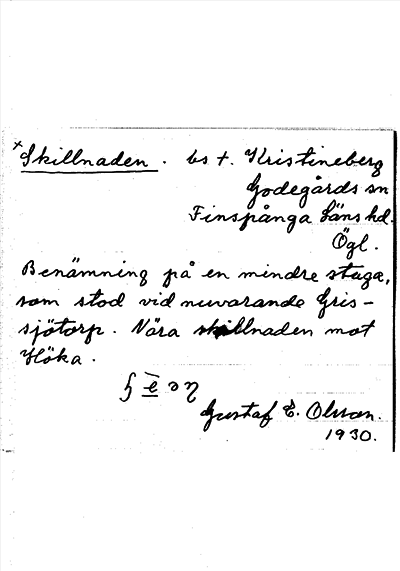 × Skillnaden. bs t. Kristineberg
Godegårds sn
Finspånga läns hd.
Ögl.
Benämning på en mindre stuga,
som stod vid nuvarande Gris-
sjötorp. Nära skillnaden mot
Höka.
Gustaf E. Olsson.
1930.